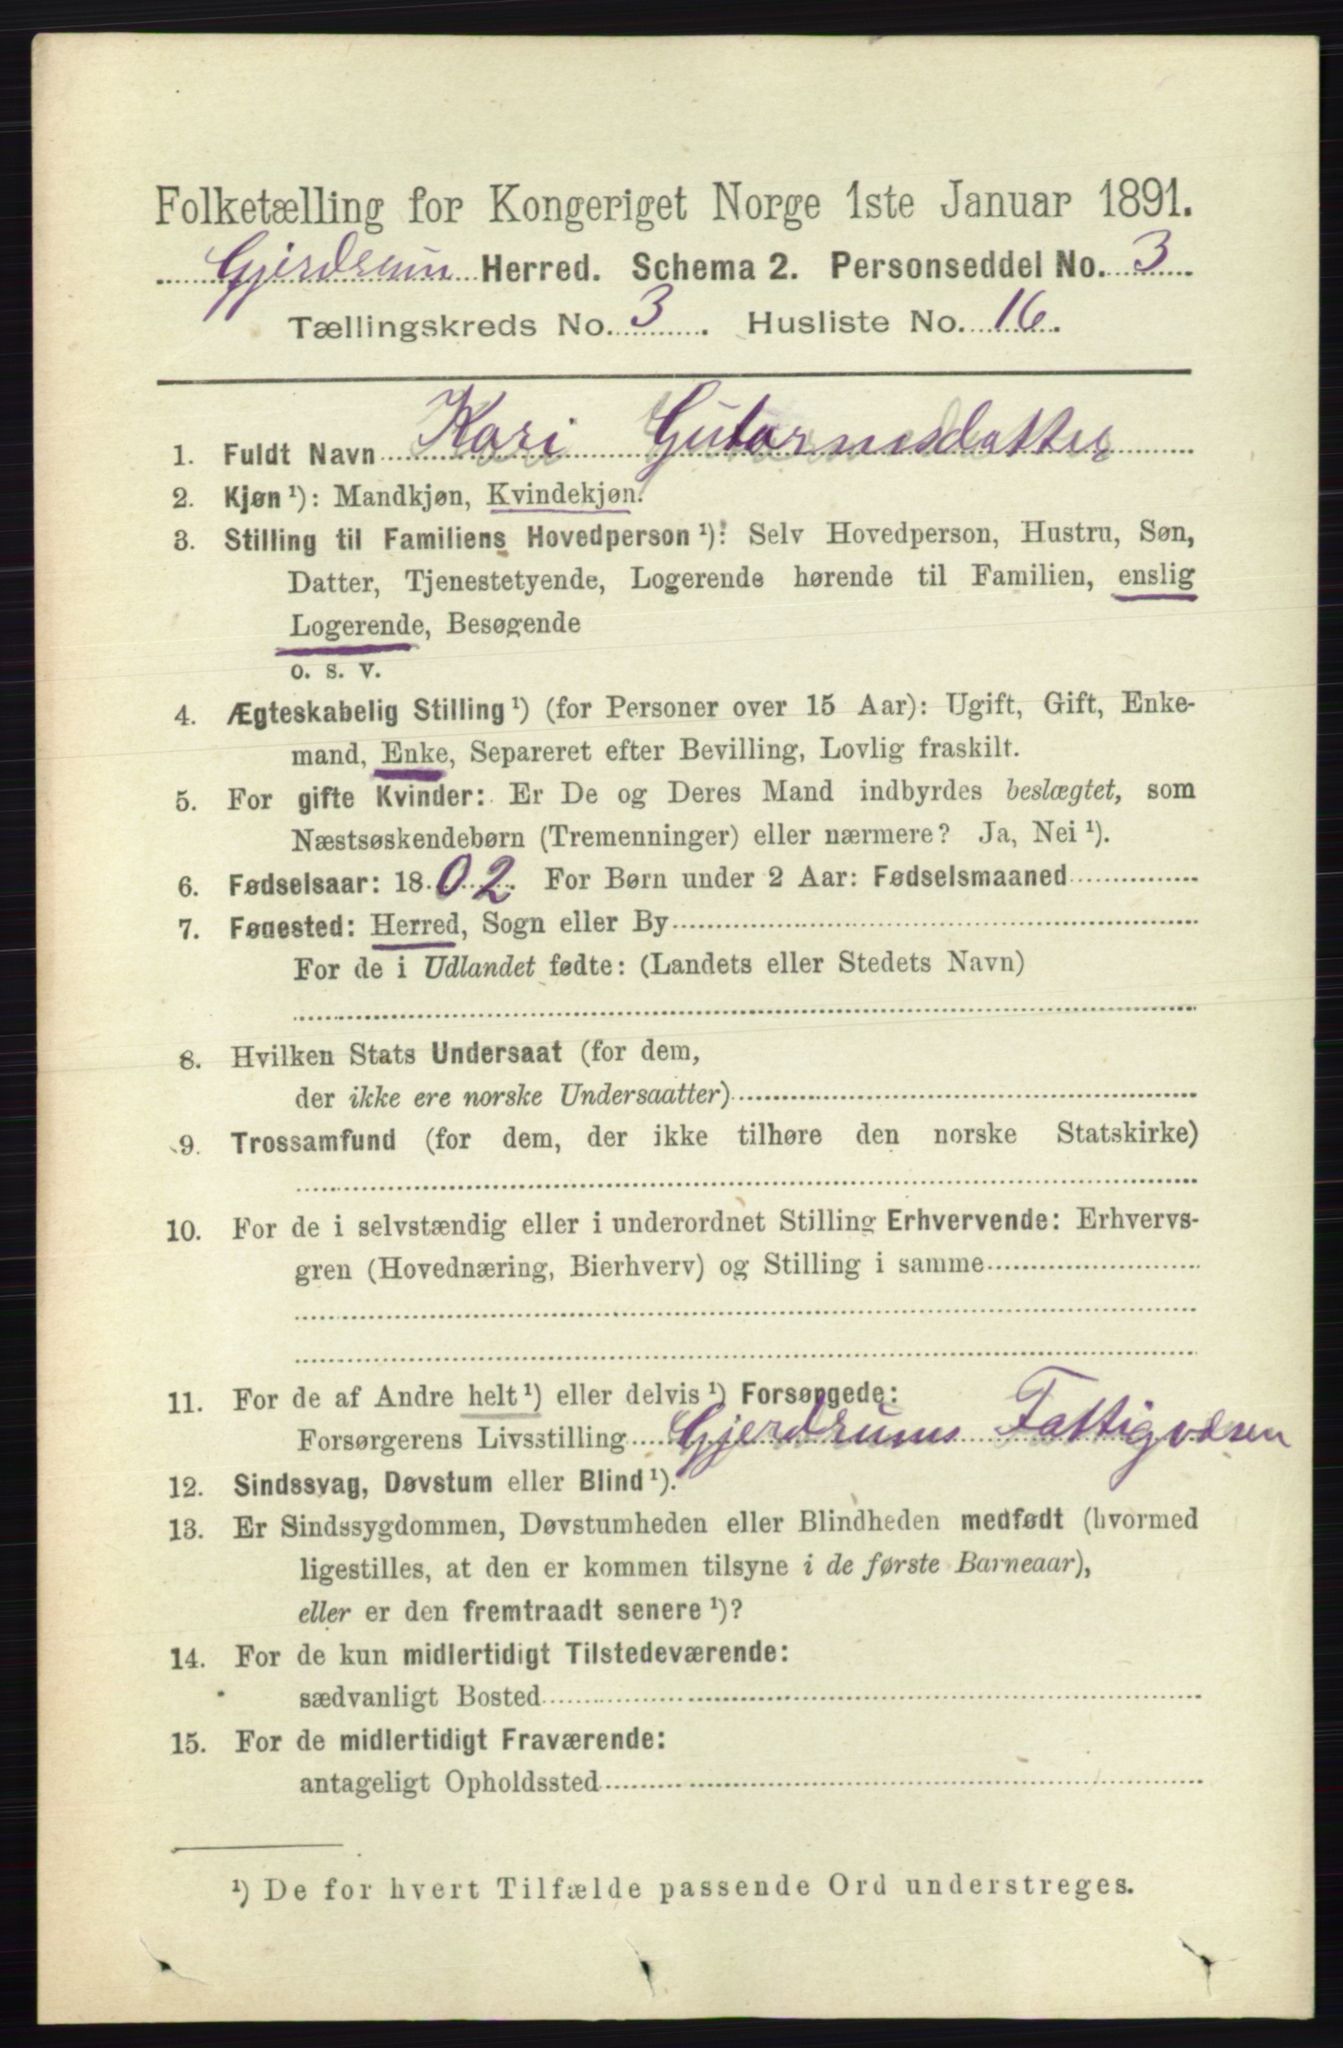 Folketælling for Kongeriget Norge 1ste Januar 1891.
Gjerdrum Herred. Schema 2. Personseddel No. 3
Tællingskreds No. 3. Husliste No. 16.
1. Fuldt Navn Kari Gutormsdatter
2. Kjøn ¹): Mandkjøn, Kvindekjøn.
3. Stilling til Familiens Hovedperson ¹): Selv Hovedperson, Hustru, Søn,
Datter, Tjenestetyende, Logerende hørende til Familien, enslig
Logerende, Besøgende
o. s. v.
4. Ægteskabelig Stilling ¹) (for Personer over 15 Aar): Ugift, Gift, Enke-
mand, Enke, Separeret efter Bevilling, Lovlig fraskilt.
5. For gifte Kvinder: Er De og Deres Mand indbyrdes beslægtet, som
Næstsøskendebørn (Tremenninger) eller nærmere? Ja, Nei ¹).
6. Fødselsaar: 1802. For Børn under 2 Aar: Fødselsmaaned
7. Fødested: Herred, Sogn eller By
For de i Udlandet fødte: (Landets eller Stedets Navn)
8. Hvilken Stats Undersaat (for dem,
der ikke ere norske Undersaatter)
9. Trossamfund (for dem, der ikke tilhøre den norske Statskirke)
10. For de i selvstændig eller i underordnet Stilling Erhvervende: Erhvervs-
gren (Hovednæring, Bierhverv) og Stilling i samme
11. For de af Andre helt ¹) eller delvis ¹) Forsørgede:
Forsørgerens Livsstilling Gjerdrums Fattigvæsen
12. Sindssvag, Døvstum eller Blind ¹).
13. Er Sindssygdommen, Døvstumheden eller Blindheden medfødt (hvormed
ligestilles, at den er kommen tilsyne i de første Barneaar),
eller er den fremtraadt senere ¹)?
14. For de kun midlertidigt Tilstedeværende:
sædvanligt Bosted
15. For de midlertidigt Fraværende:
antageligt Opholdssted
¹) De for hvert Tilfælde passende Ord understreges.